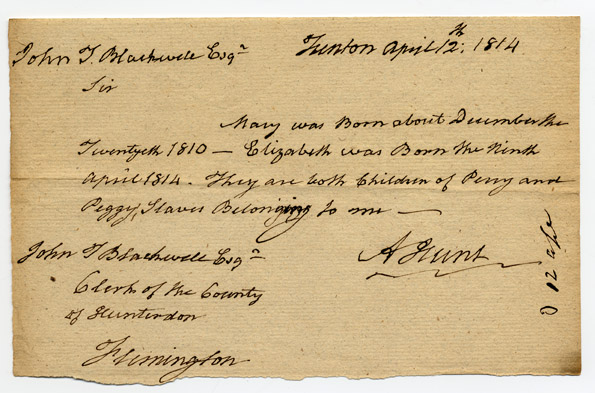 John T. Blackwell Esqr
Trenton April 12th: 1814
Sir
Mary was Born about December the
Twentyeth 1810 — Elizabeth was Born the Ninth
April 1814. They are both Children of Perry and
Peggy, Slaves Belonging to me —
A Hunt
John T Blackwell Esqr
Clerk of the County
of Hunterdon
Flemington
12